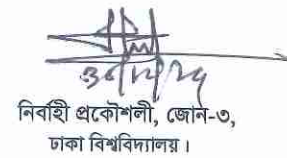 নির্বাহী প্রকৌশলী, জোন-৩,
ঢাকা বিশ্ববিদ্যালয়।